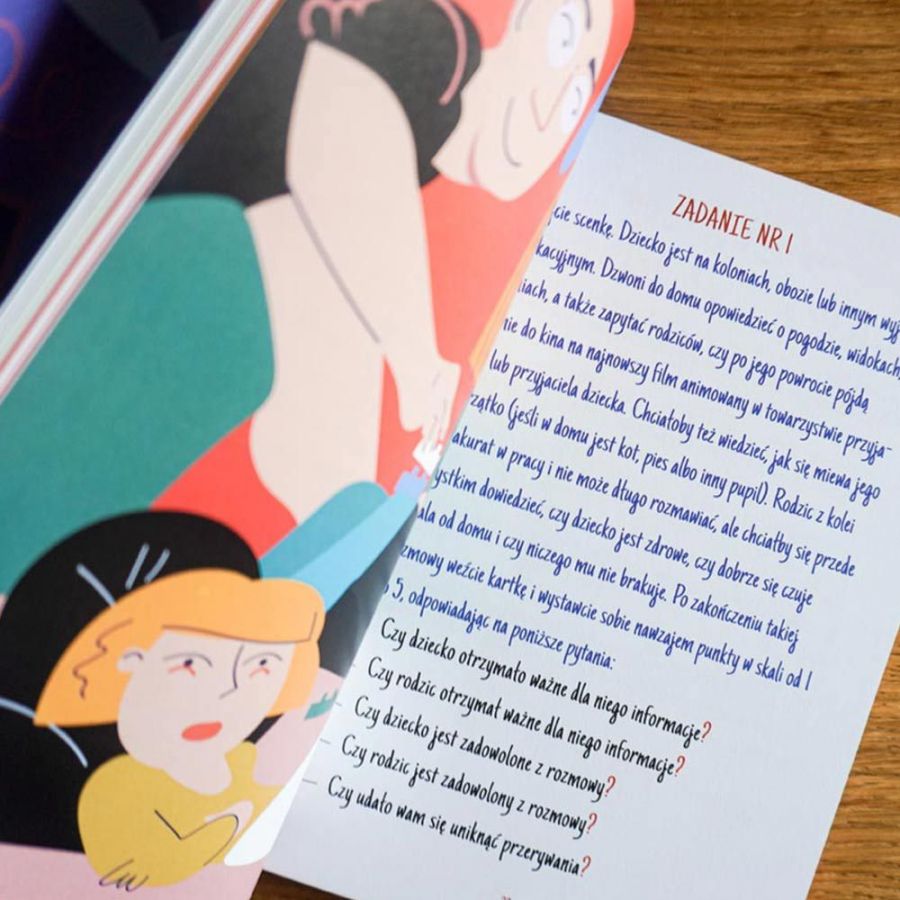 ZADANIE NR 1
cie scenkę. Dziecko jest na koloniach, obozie lub innym wyj
kacyjnym. Dzwoni do domu opowiedzieć o pogodzie, widokach,
iach, a także zapytać rodziców, czy po jego powrocie pójdą
nie do kina na najnowszy film animowany w towarzystwie przyja-
lub przyjaciela dziecka. Chciałoby też wiedzieć, jak się miewa jego
rzątko (jeśli w domu jest kot, pies albo inny pupil). Rodzic z kolei
akurat w pracy i nie może długo rozmawiać, ale chciałby się przede
ystkim dowiedzieć, czy dziecko jest zdrowe, czy dobrze się czuje
ala od domu i czy niczego mu nie brakuje. Po zakończeniu takiej
zmowy weźcie kartkę i wystawcie sobie nawzajem punkty w skali od 1
5, odpowiadając na poniższe pytania:
Czy dziecko otrzymało ważne dla niego informacje?
Czy rodzic otrzymał ważne dla niego informacje?
– Czy dziecko jest zadowolone z rozmowy?
– Czy rodzic jest zadowolony z rozmowy?
– Czy udało wam się uniknąć przerywania?